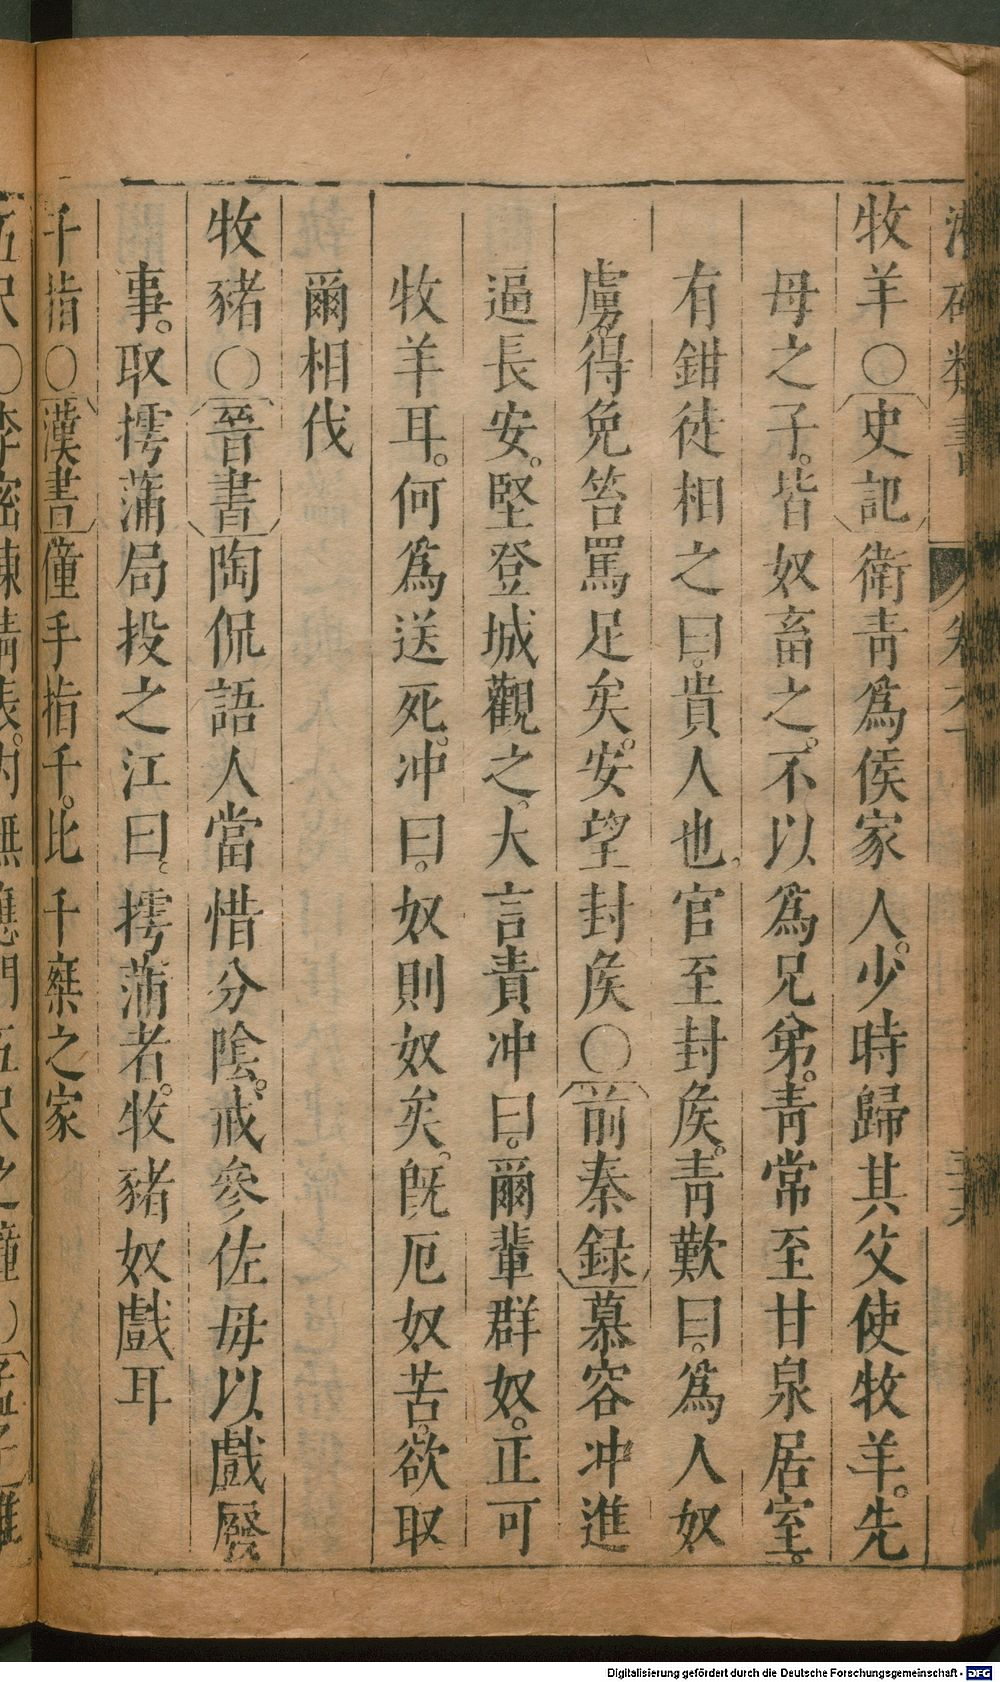 牧羊○史記衛靑爲侯家人。少時歸其父使牧羊。先
母之子。皆奴畜之。不以爲兄弟。靑常至甘泉居室。
有鉗徒相之曰。貴人也。官至封矦。靑歎曰。爲人奴
虜。得免笞罵足矣。安望封矦○前秦録慕容冲進
逼長安。堅登城觀之。大言責冲曰。爾輩群奴。正可
牧羊耳。何爲送死。冲曰。奴則奴矣。旣厄奴苦。欲取
爾相伐
牧豬○晉書陶侃語人當惜分陰。戒參佐毋以戲廢
事。取摴蒲局投之江曰。摴蒲者。牧豬奴戲耳
千指○漢書僮手指千。比千乗之家
五尺○李密陳情表。内無應門五尺之童○孟子雖
Digitalisierung gefördert durch die Deutsche Forschungsgemeinschaft - DFG